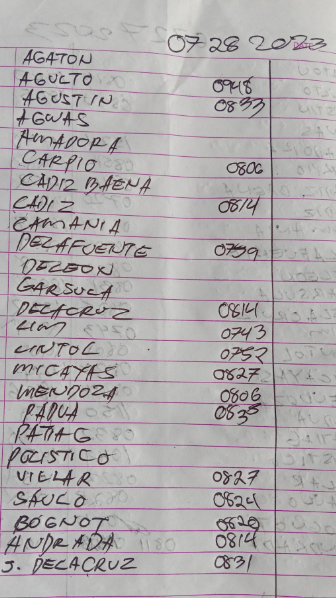 07 28 2023
AGATON
AGULTO 0948
AGUSTIN 0833
AGUAS
AMADORA
CARPIO 0806
CADIZ BAENA
CADIZ 0814
CAMANIA
DELAFUENTE 0759
DELEON
GARSULA
DELACRUZ 0814
LIM 0743
LINTOC 0752
MICAYAS 0827
MENDOZA 0806
PADUA 0835
PATIAG
POLISTICO
VIELAR 0827
SAULO 0824
BOGNOT 0820
ANDRADA 0814
J. DELACRUZ 0831